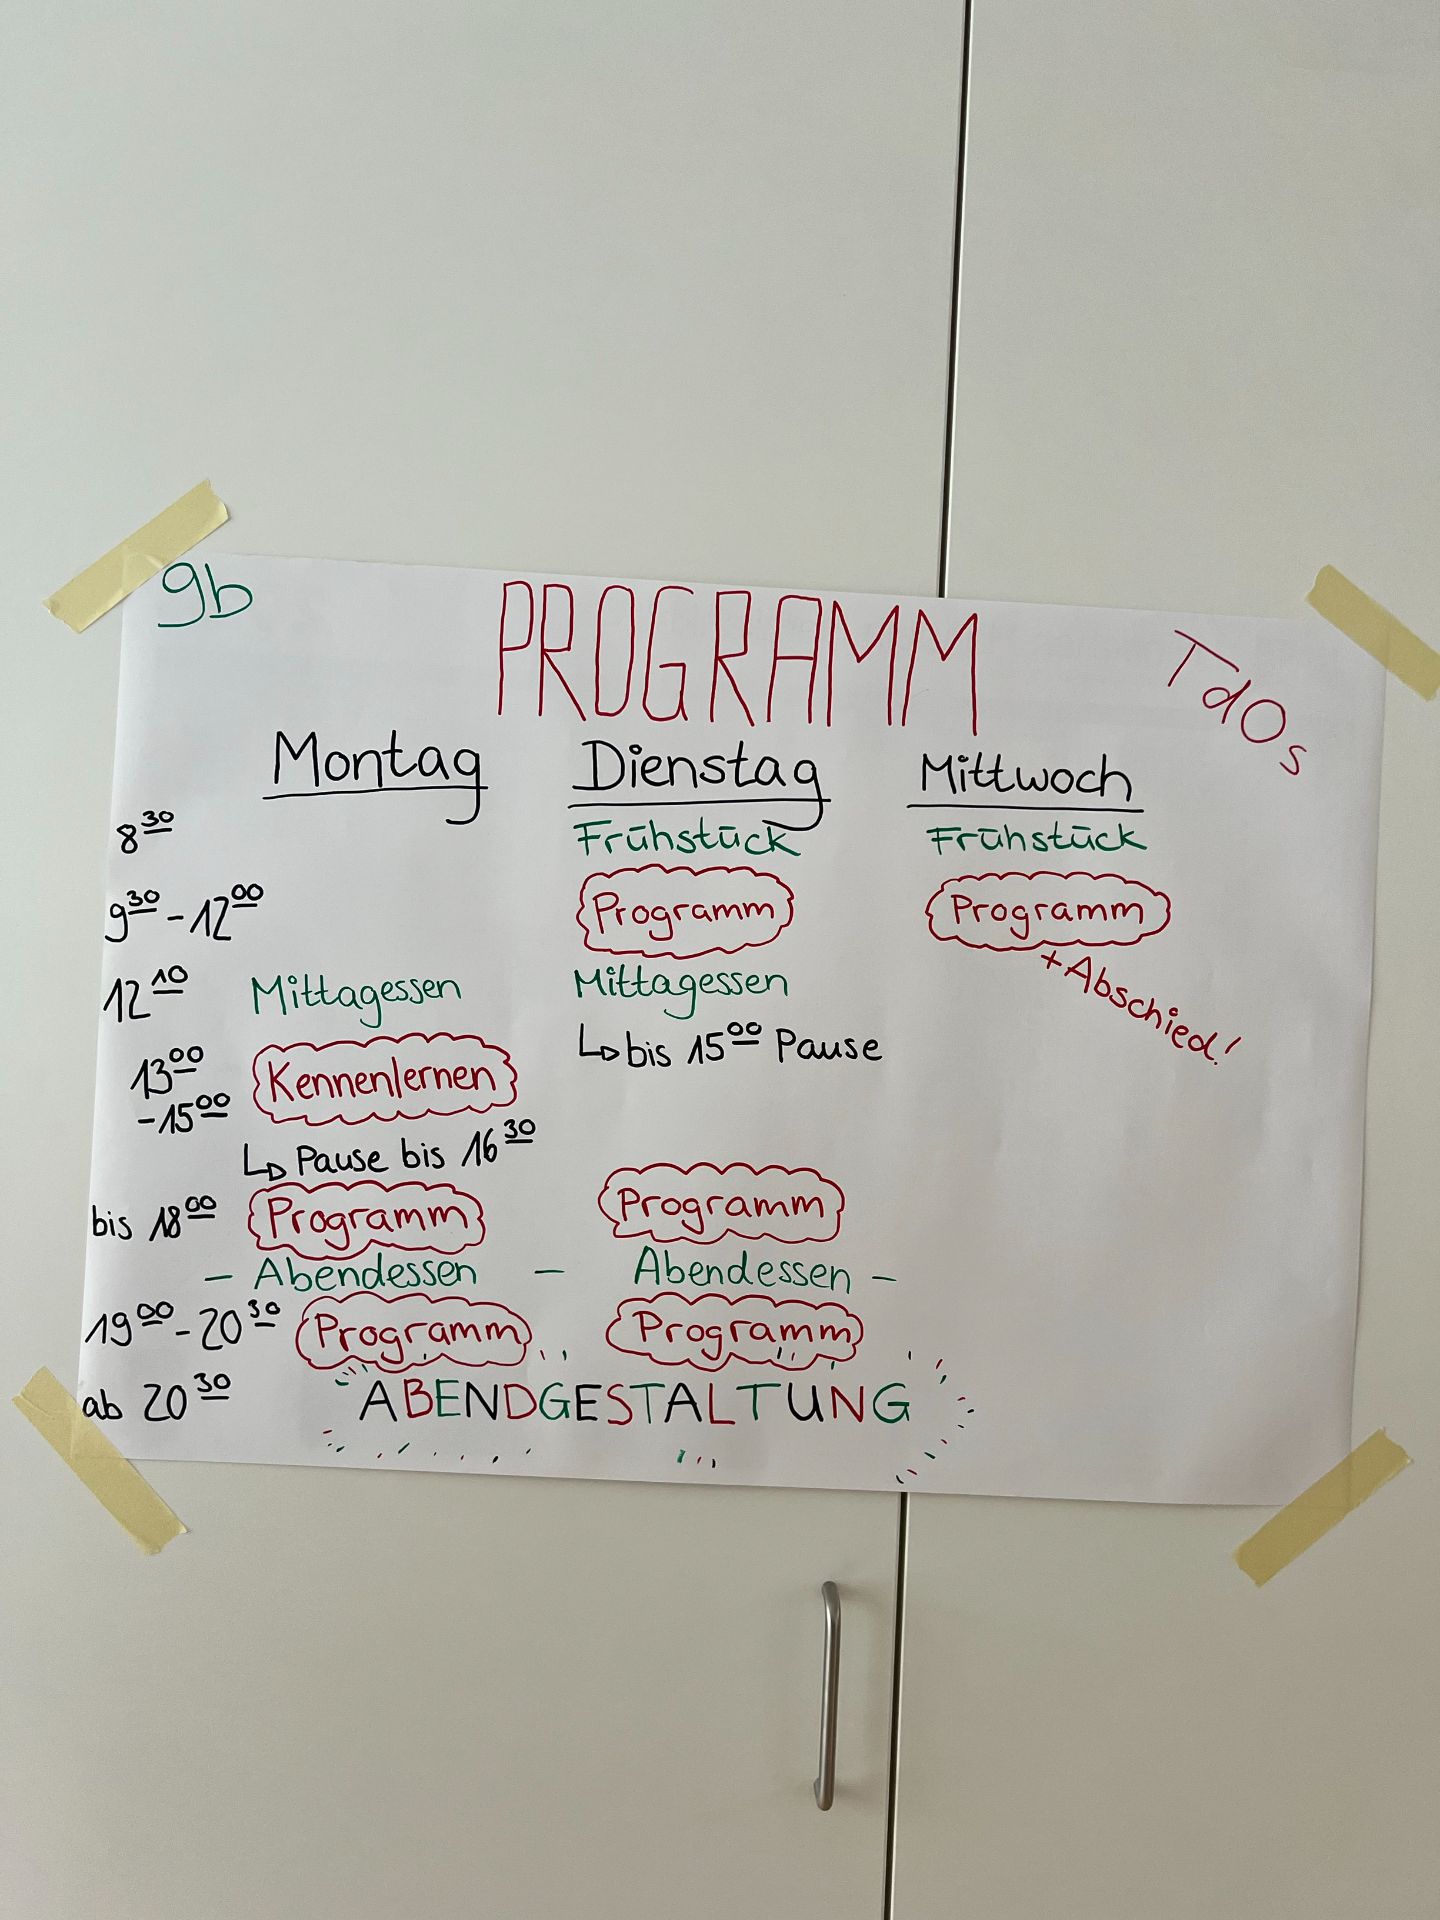 9b
PROGRAMM
TdOs
Montag Dienstag Mittwoch
8³⁰ Frühstück Frühstück
9³⁰-12⁰⁰ Programm Programm
+Abschied!
12¹⁰ Mittagessen Mittagessen
↳ bis 15⁰⁰ Pause
13⁰⁰ Kennenlernen
-15⁰⁰
↳ Pause bis 16³⁰
bis 18⁰⁰ Programm Programm
- Abendessen - Abendessen -
19⁰⁰-20³⁰ Programm Programm
ab 20³⁰ ABENDGESTALTUNG